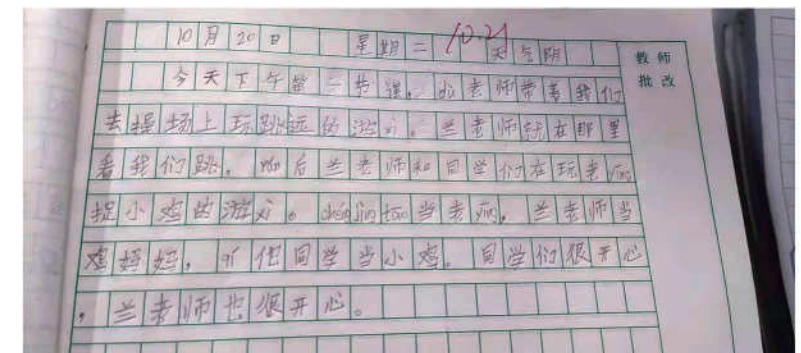 10月20日 星期二 10.21 天气阴
教师
批改
今天下午第一节课,老师带着我们
去操场上玩跳远的游xì。兰老师就在那里
看我们跳,后兰老师和同学们在玩老yīng
捉小鸡的游xì。chén jīn tāo当老yīng,兰老师当
鸡妈妈,qí他同学当小鸡。同学们很开心
,兰老师也很开心。